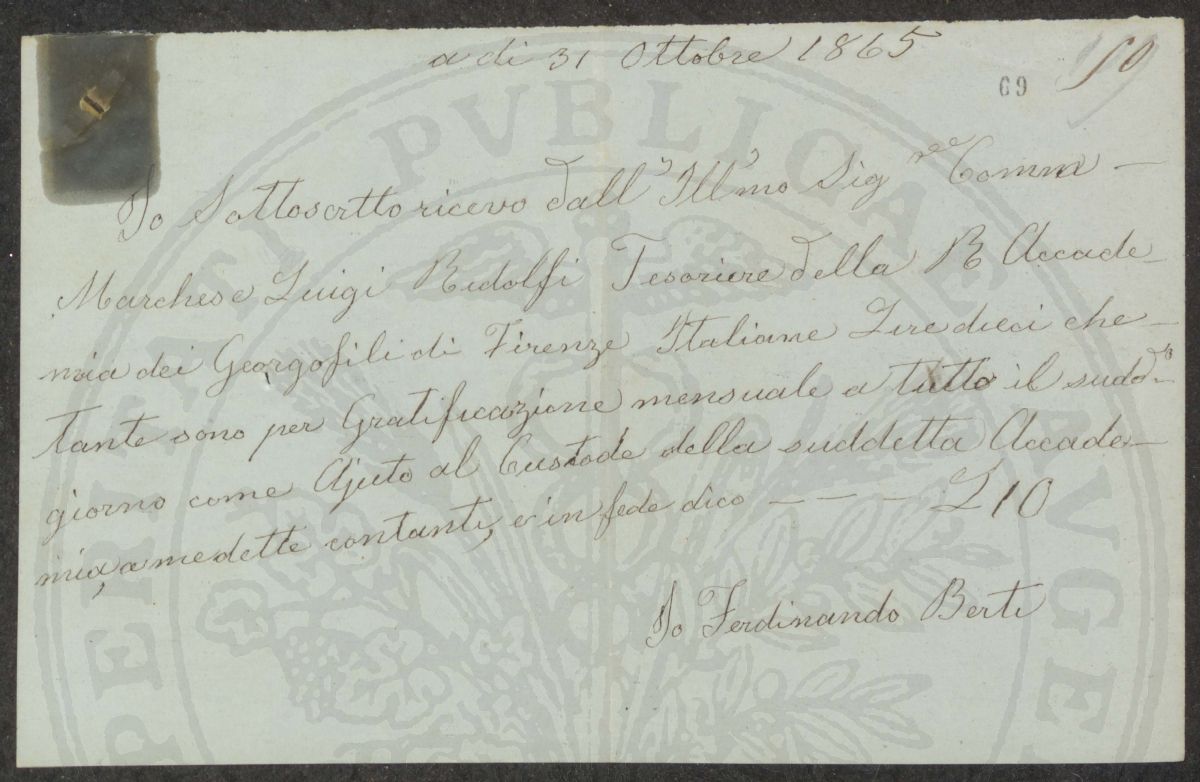 a di 31 Ottobre 1865
69
Io Sottoscritto ricevo dall' Ill'mo Sig.re Comm—
Marchese Luigi Ridolfi Tesoriere della R Accade—
mia dei Georgofili di Firenze Italiane Lire dieci che—
tante sono per Gratificazione mensuale a tutto il suddto
giorno come Ajuto al Custode della suddetta Accade—
mia, a me dette contanti, e in fede dico — — — £10
Io Ferdinando Berti
PROSPERITATI PVBLICAE AVGE